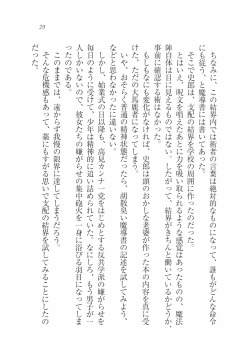 29
ちなみに、この結界内では術者の言葉は絶対的なものになって、誰もがどんな命令
にも従う、と魔導書には書いてあった。
そこで史郎は、支配の結界を学校の周囲に作ったのだった。
はいえ、呪文を唱えたあとに力を吸い取られるような感覚はあったものの、魔法
陣自体は目に見えるものではない。したがって、結界がきちんと働いているかどうか、
事前に確認する術はなかった。
もしもなにも変化がなければ、史郎は頭のおかしな老婆が作った本の内容を真に受
けた、ただの大馬鹿者になってしまう。
いや、おそらく普通の精神状態だったら、胡散臭い魔導書の記述を試してみよう、
などと思わなかったに違いない。
しかし、始業式の日以降も、高見カンナ一党をはじめとする反共学派の嫌がらせを
毎日のように受けて、少年は精神的に追い詰められていた。なにしろ、もう男子が一
人しかいないので、彼女たちの嫌がらせの集中砲火を一身に浴びる羽目になってしま
ったのである。
このままでは、遠からず我慢の限界に達してしまうだろう。
そんな危機感もあって、藁にもすがる思いで支配の結界を試してみることにしたの
だった。